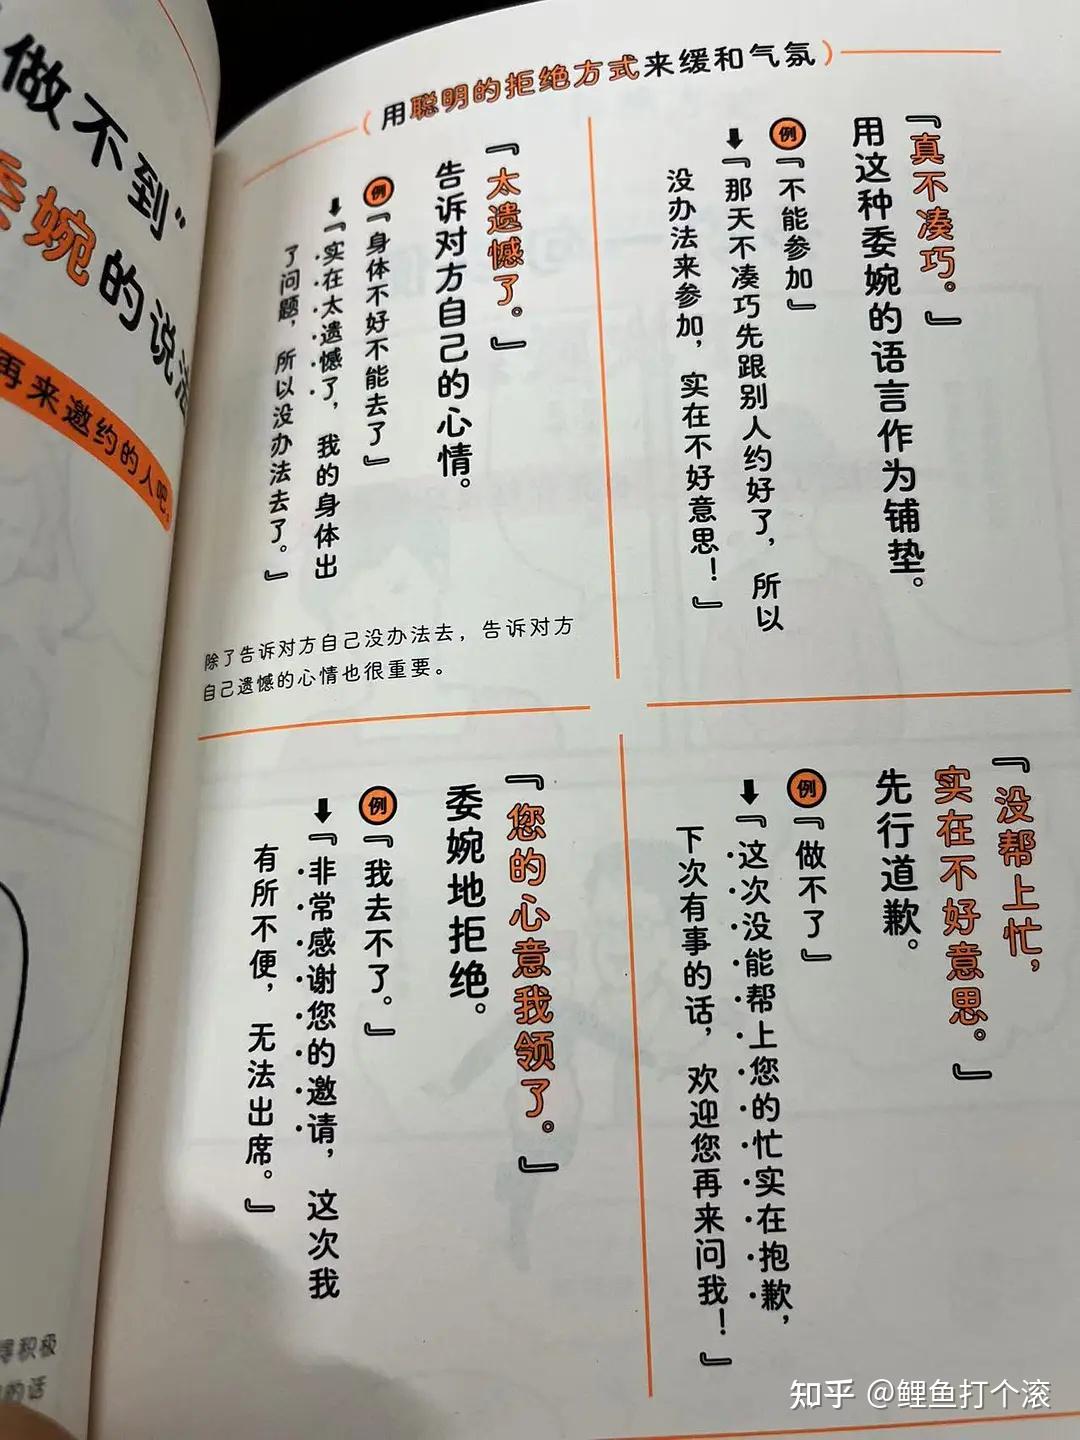 用聪明的拒绝方式来缓和气氛
『真不凑巧。』
用这种委婉的语言作为铺垫。
例『不能参加』
『那天不凑巧先跟别人约好了，所以
没办法来参加，实在不好意思！』
『太遗憾了。』
告诉对方自己的心情。
例『身体不好不能去了』
『实在太遗憾了，我的身体出
了问题，所以没办法去了。』
除了告诉对方自己没办法去，告诉对方
自己遗憾的心情也很重要。
『没帮上忙，
实在不好意思。』
先行道歉。
例『做不了』
『这次没能帮上您的忙实在抱歉，
下次有事的话，欢迎您再来问我！』
『您的心意我领了。』
委婉地拒绝。
例『我去不了。』
『非常感谢您的邀请，这次我
有所不便，无法出席。』
做不到”
委婉的说法
再来邀约的人吧。
得积极
的话
知乎 @鲤鱼打个滚